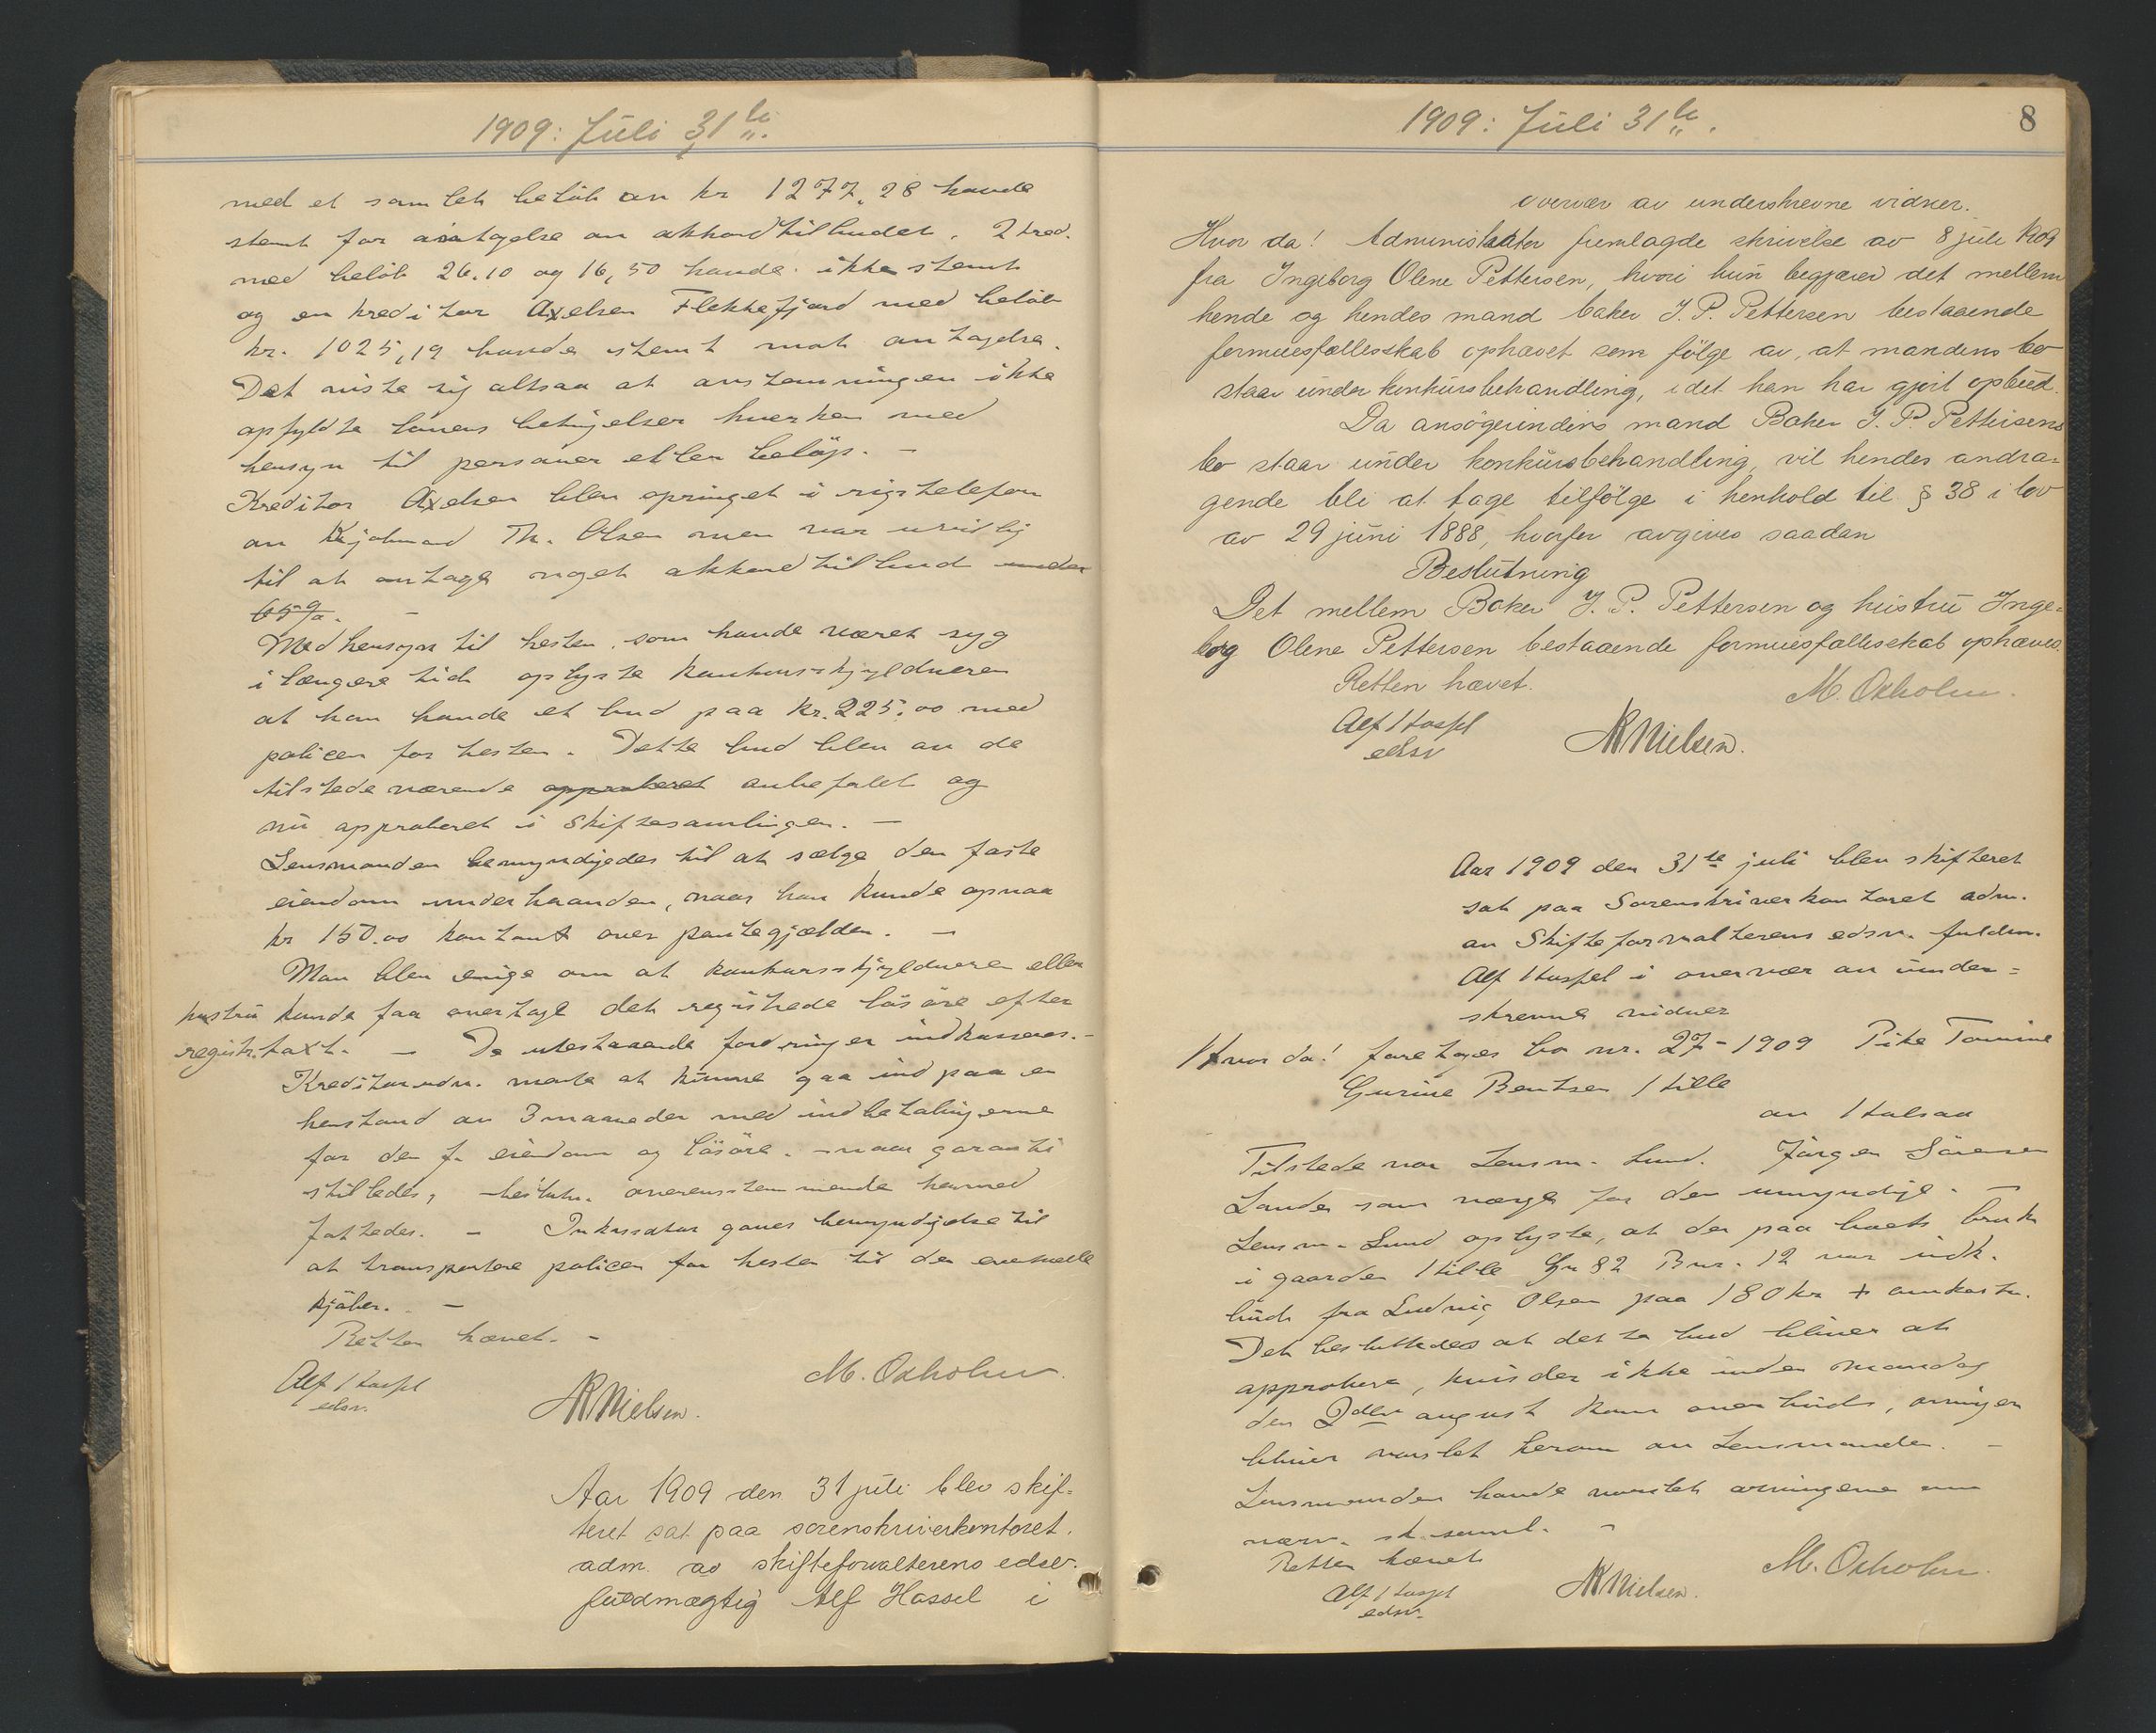 1909: Juli 31te
med et samlet beløb av kr 1277,28 havde
stemt for antagelse av akkordtilbudet. 2 kred.
med beløb 26.10 og 16,50 havde ikke stemt
og en kreditor Axelsen Flekkefjord med beløb
kr. 1025,19 havde stemt mot antagelse.
Det viste sig altsaa at avstemningen ikke
opfyldte lovens betingelser hverken med
hensyn til personer eller beløp. –
Kreditor Axelsen blev opringet i rigstelefon
av Kjøbmand Th. Olsen men var uvillig
til at antage noget akkordtilbud under
65%. –
Med hensyn til hesten, som havde været syg
i længere tid oplyste konkursskyldneren
at han havde et bud paa kr. 225,00 med
policen for hesten. Dette bud blev av de
tilstedeværende approberet anbefalet og
nu approberet i Skiftesamlingen. –
Lensmanden bemyndigedes til at sælge den faste
eiendom underhaanden, naar han kunde opnaa
kr 150.00 kontant over pantegjælden. –
Man blev enige om at konkursskyldneren eller
hustru kunde faa overtage det registrede løsøre efter
registr.taxt. – De utestaaende fordringer indkasseres. –
Kreditorudv. mente at kunne gaa ind paa en
henstand av 3 maaneder med indbetalingerne
for den f. eiendom og løsøre. – naar garanti
stilledes, beslutn. overensstemmende hermed
fattedes. – Inkassator gaves bemyndigelse til
at transportere policen for hesten til den eventuelle
kjøber. –
Retten hævet. –
Alf Hassel
edsv.
M. Oxholm.
AR Nielsen.
Aar 1909 den 31 juli blev skif-
teret sat paa sorenskriverkontoret.
adm. av skifteforvalterens edsv.
fuldmægtig Alf Hassel i
1909: Juli 31te.
8
overvær av underskrevne vidner.
Hvor da! Administrator fremlagde skrivelse av 8 juli 1909
fra Ingeborg Olene Pettersen, hvori hun begjærer det mellem
hende og hendes mand baker J. P. Pettersen bestaaende
formuesfællesskab ophævet som følge av, at mandens bo
staar under konkursbehandling, idet han har gjort opbud.
Da ansøgerindens mand Baker J. P. Pettersens
bo staar under konkursbehandling, vil hendes andra-
gende bli at tage tilfølge i henhold til § 38 i lov
av 29 juni 1888, hvorfor avgives saadan
Beslutning
Det mellem Baker J. P. Pettersen og hustru Inge-
borg Olene Pettersen bestaaende formuesfællesskab ophæves.
Retten hævet.
M. Oxholm.
Alf Hassel
edsv
AR Nielsen.
Aar 1909 den 31te juli blev skifteret
sat paa Sorenskriverkontoret adm.
av Skifteforvalterens edsv. fuldm.
Alf Hassel i overvær av under-
skrevne vidner
Hvor da! foretages bo nr. 27-1909 Pike Tomine
Gurine Bentsen Hille
av Halsaa
Tilstede var Lensm. Lund. Jørgen Sørensen
Lande som værge for den umyndige. –
Lensm. Lund oplyste, at der paa boets bruk
i gaarden Hille Gn 82 Bnr. 12 var indk.
bud fra Ludvig Olsen paa 180 kr + omkostn.
Det besluttedes at dette bud bliver at
approbere, hvis der ikke inden mandag
den 2den august kom overbud, arvingen
bliver varslet herom av Lensmanden. –
Lensmanden havde varslet arvingerne om
nærv. sk.saml. –
Retten hævet
Alf Hassel
edsv.
AR Nielsen.
M. Oxholm.